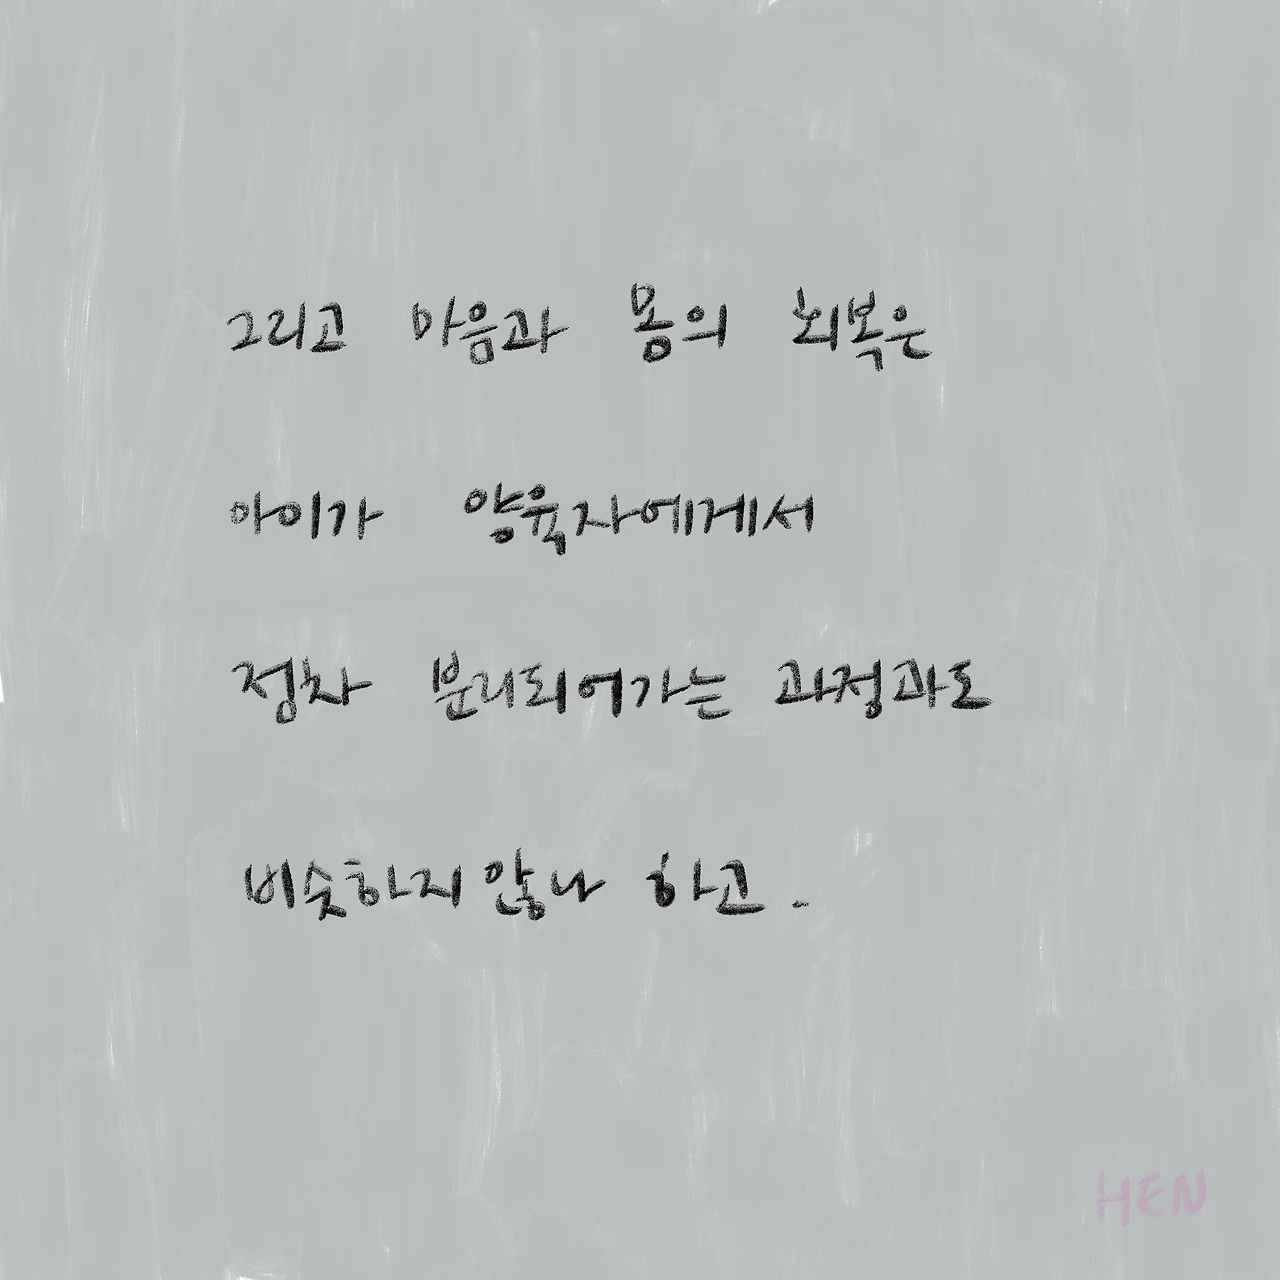 그리고 마음과 몸의 회복은
아이가 양육자에게서
점차 분리되어가는 과정과도
비슷하지 않나 하고.
HEN